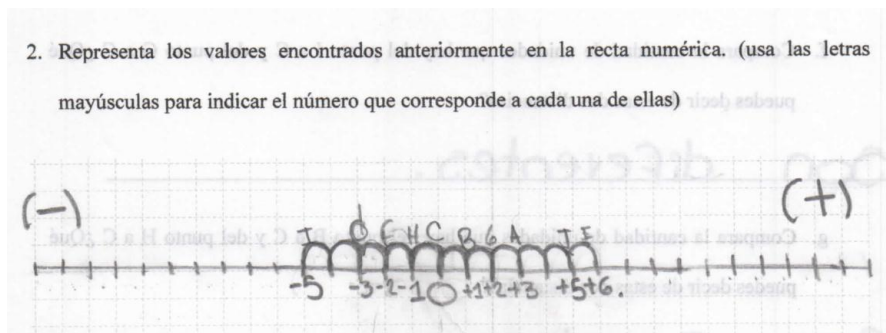 2. Representa los valores encontrados anteriormente en la recta numérica. (usa las letras
mayúsculas para indicar el número que corresponde a cada una de ellas)
(-) (+)
H C B G A J I
-5 -3 -2 -1 0 +1 +2 +3 +5 +6.